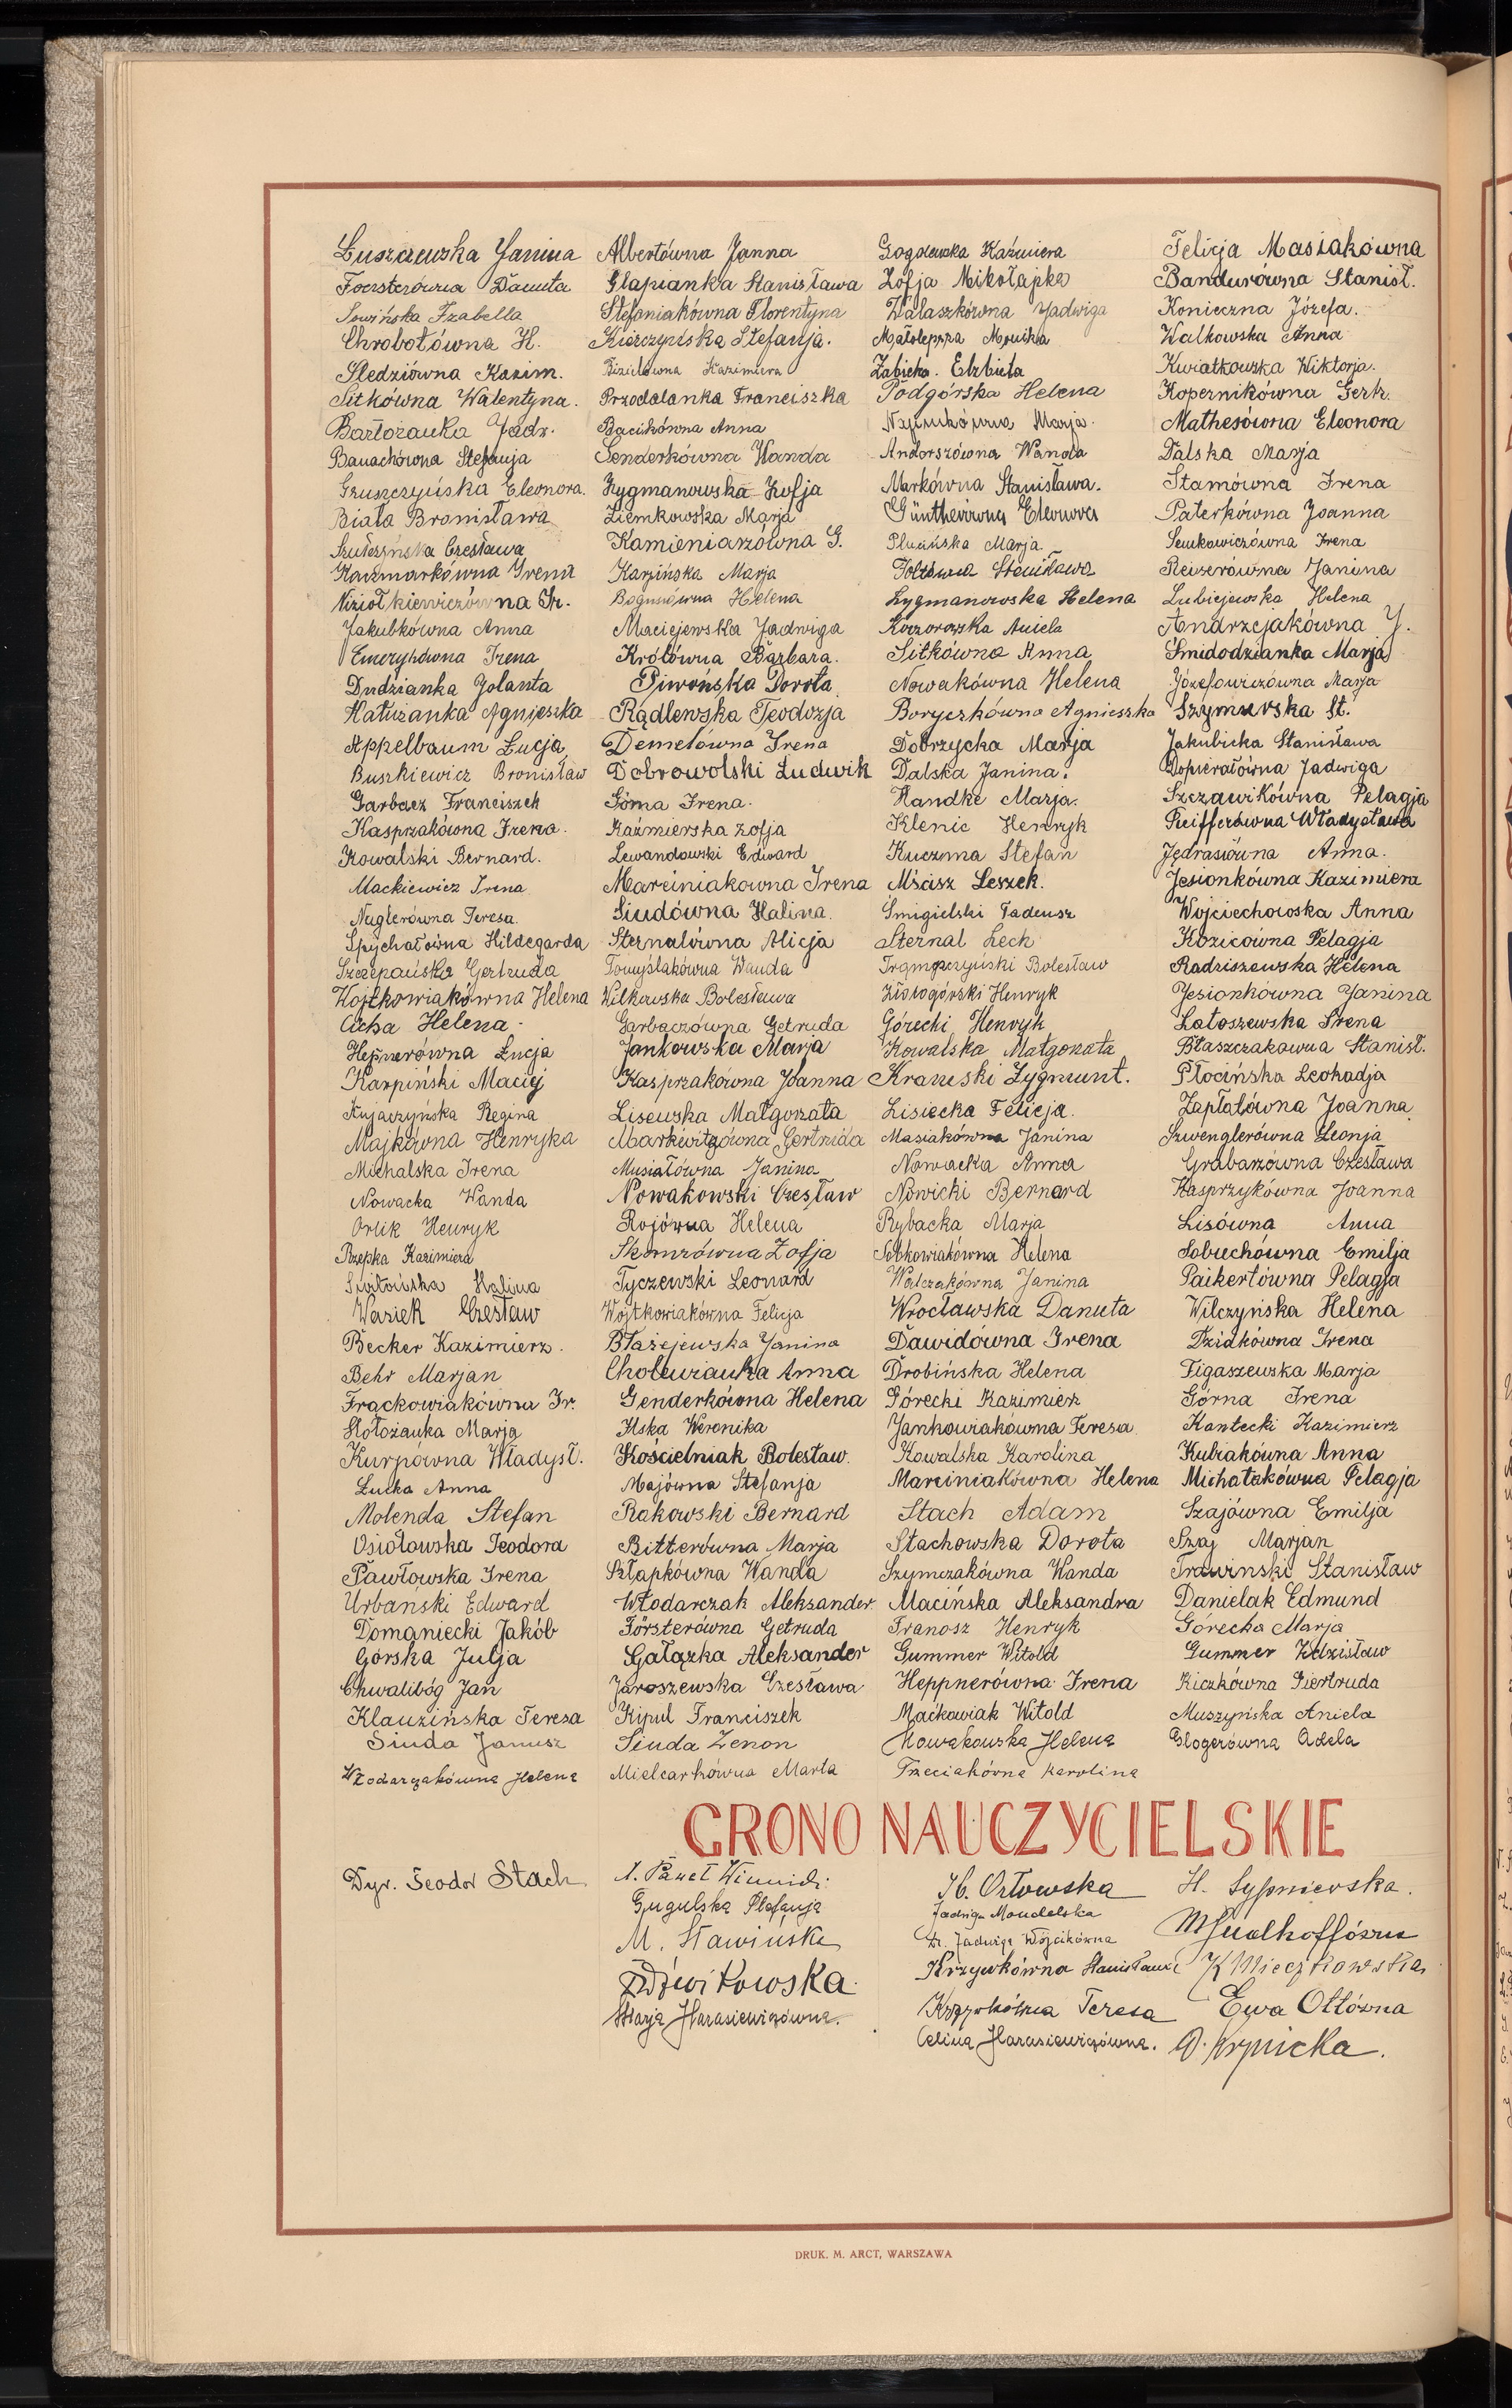 Łuszczewska Janina
Foersterówna Danuta
Sowińska Izabella
Chrobotówna H.
Śledziówna Kazim.
Sitkówna Walentyna.
Bartożanka Jadz.
Banachówna Stefanja
Gruszczyńska Eleonora.
Biała Bronisława
Szułczyńska Czesława
Kaczmarkówna Irena
Niziołkiewiczówna Ir.
Jakubkówna Anna
Emerykówna Irena
Dudzianka Jolanta
Hałużanka Agnieszka
Appelbaum Łucja
Buszkiewicz Bronisław
Garbacz Franciszek
Kasprzakówna Irena.
Kowalski Bernard.
Mackiewicz Irena
Nuglerówna Teresa.
Spychałówna Hildegarda
Szczepańska Gertruda
Wojtkowiakówna Helena
Cicha Helena.
Hepnerówna Łucja
Karpiński Maciej
Kujaczyńska Regina
Majkówna Henryka
Michalska Irena
Nowacka Wanda
Orlik Henryk
Rzepka Kazimiera
Switońska Halina
Wasiek Czesław
Becker Kazimierz.
Behr Marjan
Frąckowiakówna Ir.
Hołożanka Marja
Kurpówna Władysł.
Łucka Anna
Molenda Stefan
Osiołowska Teodora
Pawłowska Irena
Urbański Edward
Domaniecki Jakób
Górska Julja
Chwalibóg Jan
Klauzińska Teresa
Siuda Janusz
Włodarzakówna Helena
Albertówna Janna
Głapianka Stanisława
Stefaniakówna Florentyna
Kierczyńska Stefanja.
Kazimiera
Przodalanka Franciszka
Bacikówna Anna
Senderkówna Wanda
Zygmanowska Zofja
Ziemkowska Marja
Kamieniarzówna G.
Karpińska Marja
Bogusiówna Helena
Maciejewska Jadwiga
Królówna Barbara.
Piwońska Dorota
Rądlewska Teodozja
Demelówna Irena
Dobrowolski Ludwik
Górna Irena.
Kaźmierska Zofja
Lewandowski Edward
Marciniakowna Irena
Siudówna Halina.
Sternalówna Alicja
Tomyślakówna Wanda
Wilkowska Bolesława
Garbaczówna Getruda
Jankowska Marja
Kasprzakówna Joanna
Lisewska Małgorzata
Markiewitzówna Gertruda
Musiałówna Janina
Nowakowski Czesław
Rojówna Helena
Skomrówna Zofja
Tyczewski Leonard
Wojtkowiakówna Felicja
Błażejewska Janina
Cholewianka Anna
Genderkówna Helena
Ilska Weronika
Kościelniak Bolesław.
Majówna Stefanja
Rakowski Bernard
Bitterówna Marja
Szłapkówna Wanda
Włodarczak Aleksander.
Försterówna Getruda
Gałązka Aleksander
Jaroszewska Czesława
Kipul Franciszek
Siuda Zenon
Mielcarkówna Marta
Kaźmiera
Zofja Mikołajka
Walaszkówna Jadwiga
Małolepsza Monika
Żabicka. Elżbieta
Podgórska Helena
Marja.
Andorszówna Wanda
Markówna Stanisława.
Güntherówna Eleonora
Marja
Stanisława
Zygmanowska Helena
Koczorowska Aniela
Sitkówna Anna
Nowakówna Helena
Boryczkówna Agnieszka
Dobrzycka Marja
Dalska Janina.
Handke Marja.
Klenic Henryk
Kuczma Stefan
Mścisz Leszek.
Śmigielski Tadeusz
Sternal Lech
Trąmpczyński Bolesław
Złotogórski Henryk
Górecki Henryk
Kowalska Małgorzata
Zygmunt.
Lisiecka Felicja.
Masiakówna Janina
Nowacka Anna
Nowicki Bernard
Rybacka Marja
Sobkowiakówna Helena
Walczakówna Janina
Wrocławska Danuta
Dawidówna Irena
Drobińska Helena
Górecki Kazimierz
Jankowiakówna Teresa
Kowalska Karolina
Marciniakówna Helena
Stach Adam
Stachowska Dorota
Szymczakówna Wanda
Macińska Aleksandra
Franosz Henryk
Gummer Witold
Heppnerówna Irena
Maćkowiak Witold
Nowakowska Helena
Trzeciakówna Karolina
Felicja Masiakówna
Bandurówna Stanisł.
Konieczna Józefa.
Walkowska Anna
Kwiatkowska Wiktorja.
Kopernikówna Gertr.
Mathesówna Eleonora
Dalska Marja
Stamówna Irena
Paterkówna Joanna
Senkowiczówna Irena
Reiserówna Janina
Lubiejewska Helena
Andrzejakówna J.
Śmidodzianka Marja
Józefowiczówna Marja
Szymurska St.
Jakubicka Stanisława
Dopierałówna Jadwiga
Szczawikówna Pelagja
Pfeifferówna Władysława
Jędrasiówna Anna.
Jesionkówna Kazimiera
Wojciechowska Anna
Kozicówna Pelagja
Radziszewska Helena
Jesionkówna Janina
Łatoszewska Irena
Błaszczakówna Stanisł.
Płocińska Leokadja
Zapłatówna Joanna
Szwenglerówna Leonja
Grabarzówna Czesława
Kasprzykówna Joanna
Lisówna Anna
Sobiechówna Emilja
Paikertówna Pelagja
Wilczyńska Helena
Dziakówna Irena
Figaszewska Marja
Górna Irena
Kantecki Kazimierz
Kubiakówna Anna
Michałakówna Pelagja
Szajówna Emilja
Szaj Marjan
Trawinski Stanisław
Danielak Edmund
Górecka Marja
Gummer Zdzisław
Kiczkówna Giertruda
Muszyńska Aniela
Glogerówna Adela
GRONO NAUCZYCIELSKIE
Dyr. Teodor Stach
Paweł
Gugulska Stefanja
M. Sławińska
Marja Harasiewiczówna.
Orłowska
Jadwiga Mondelska
Dr. Jadwiga Wójcikówna
Krzywkówna Stanisława
Krzywkówna Teresa
Celina Harasiewiczówna.
H. Sypniewska.
K Mieczkowska
Ewa Ottówna
DRUK. M. ARCT, WARSZAWA